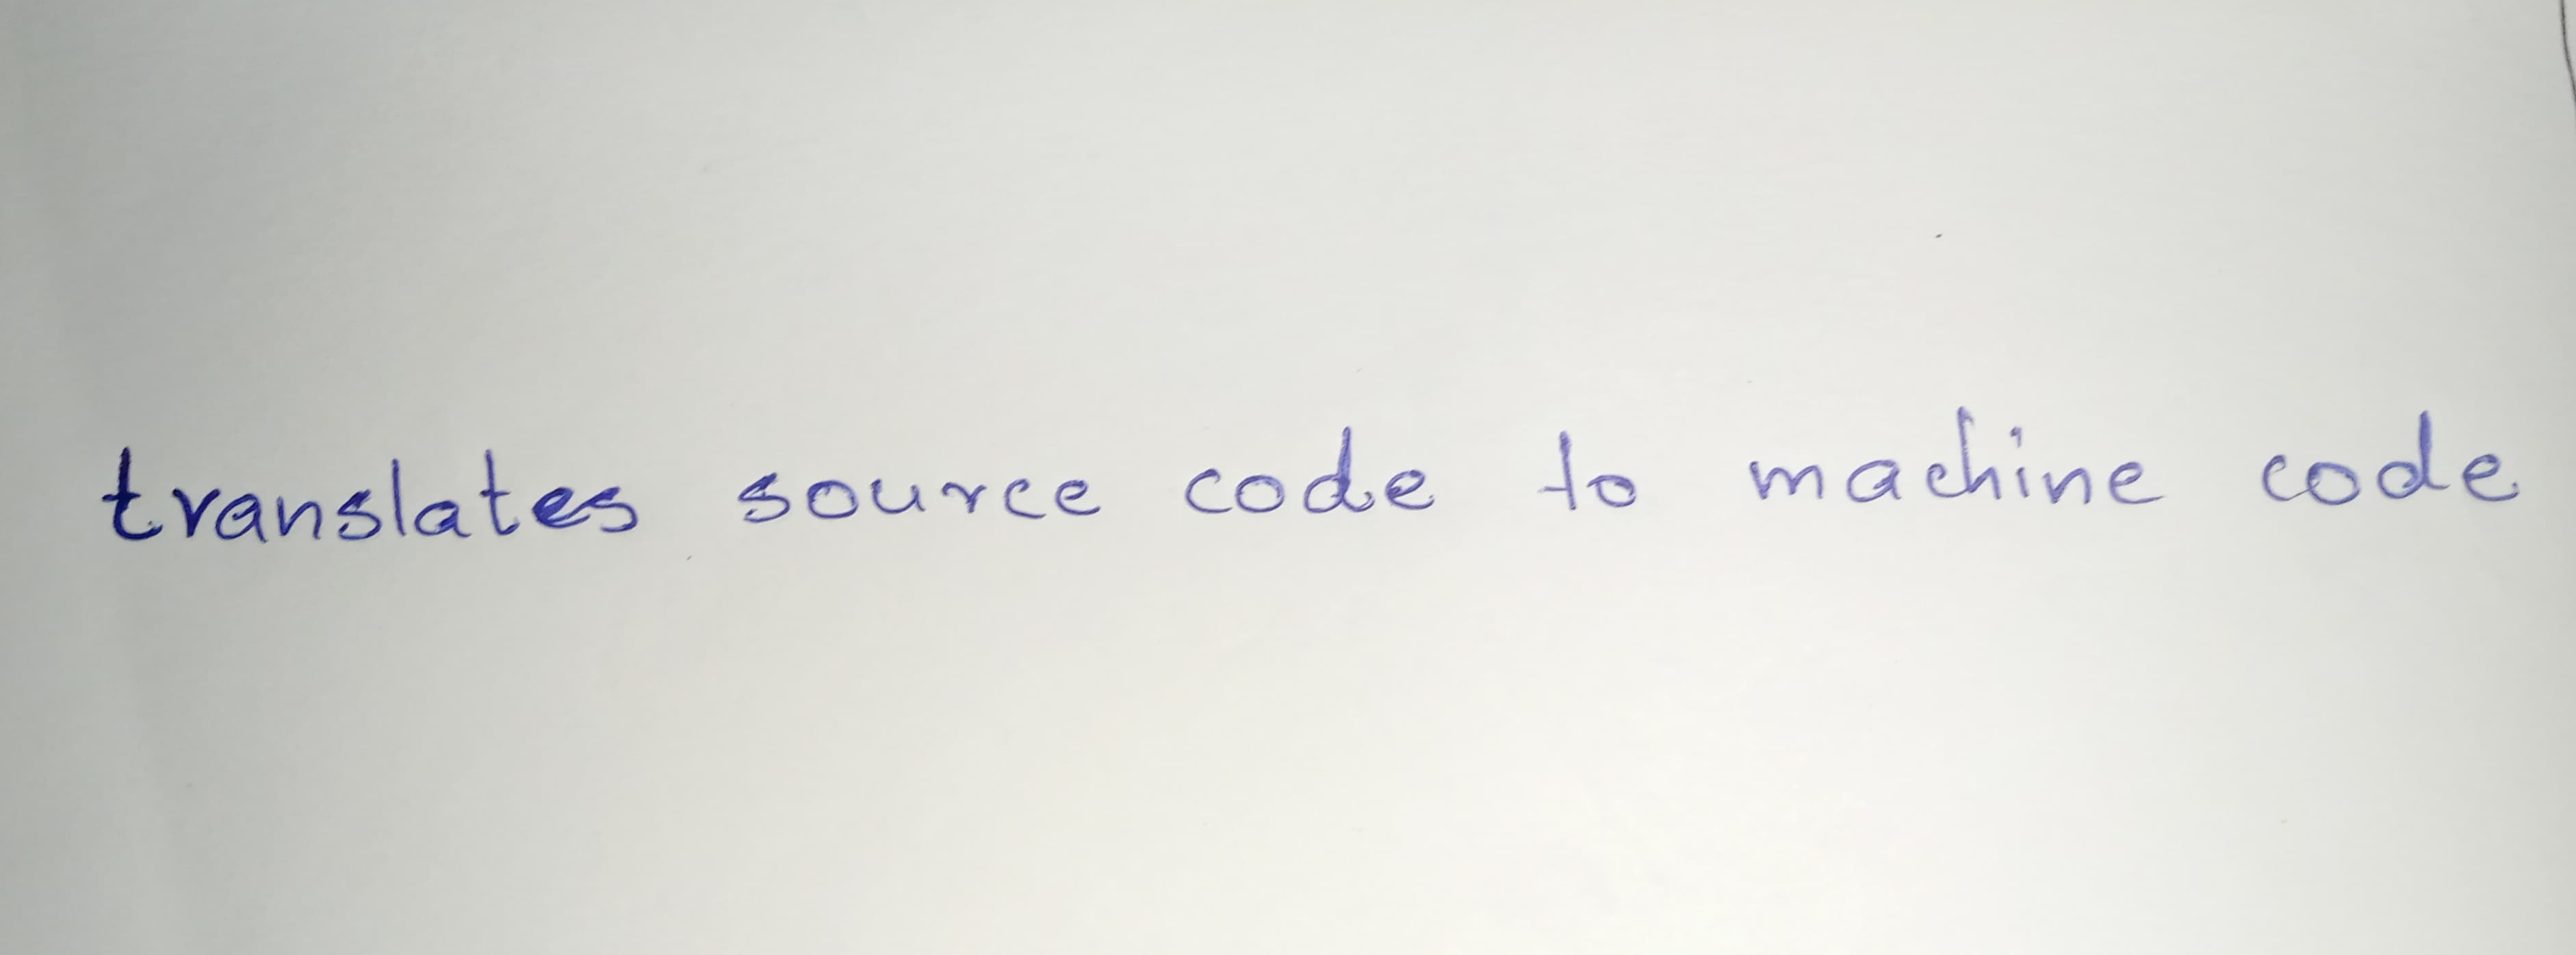 translates source code to machine code